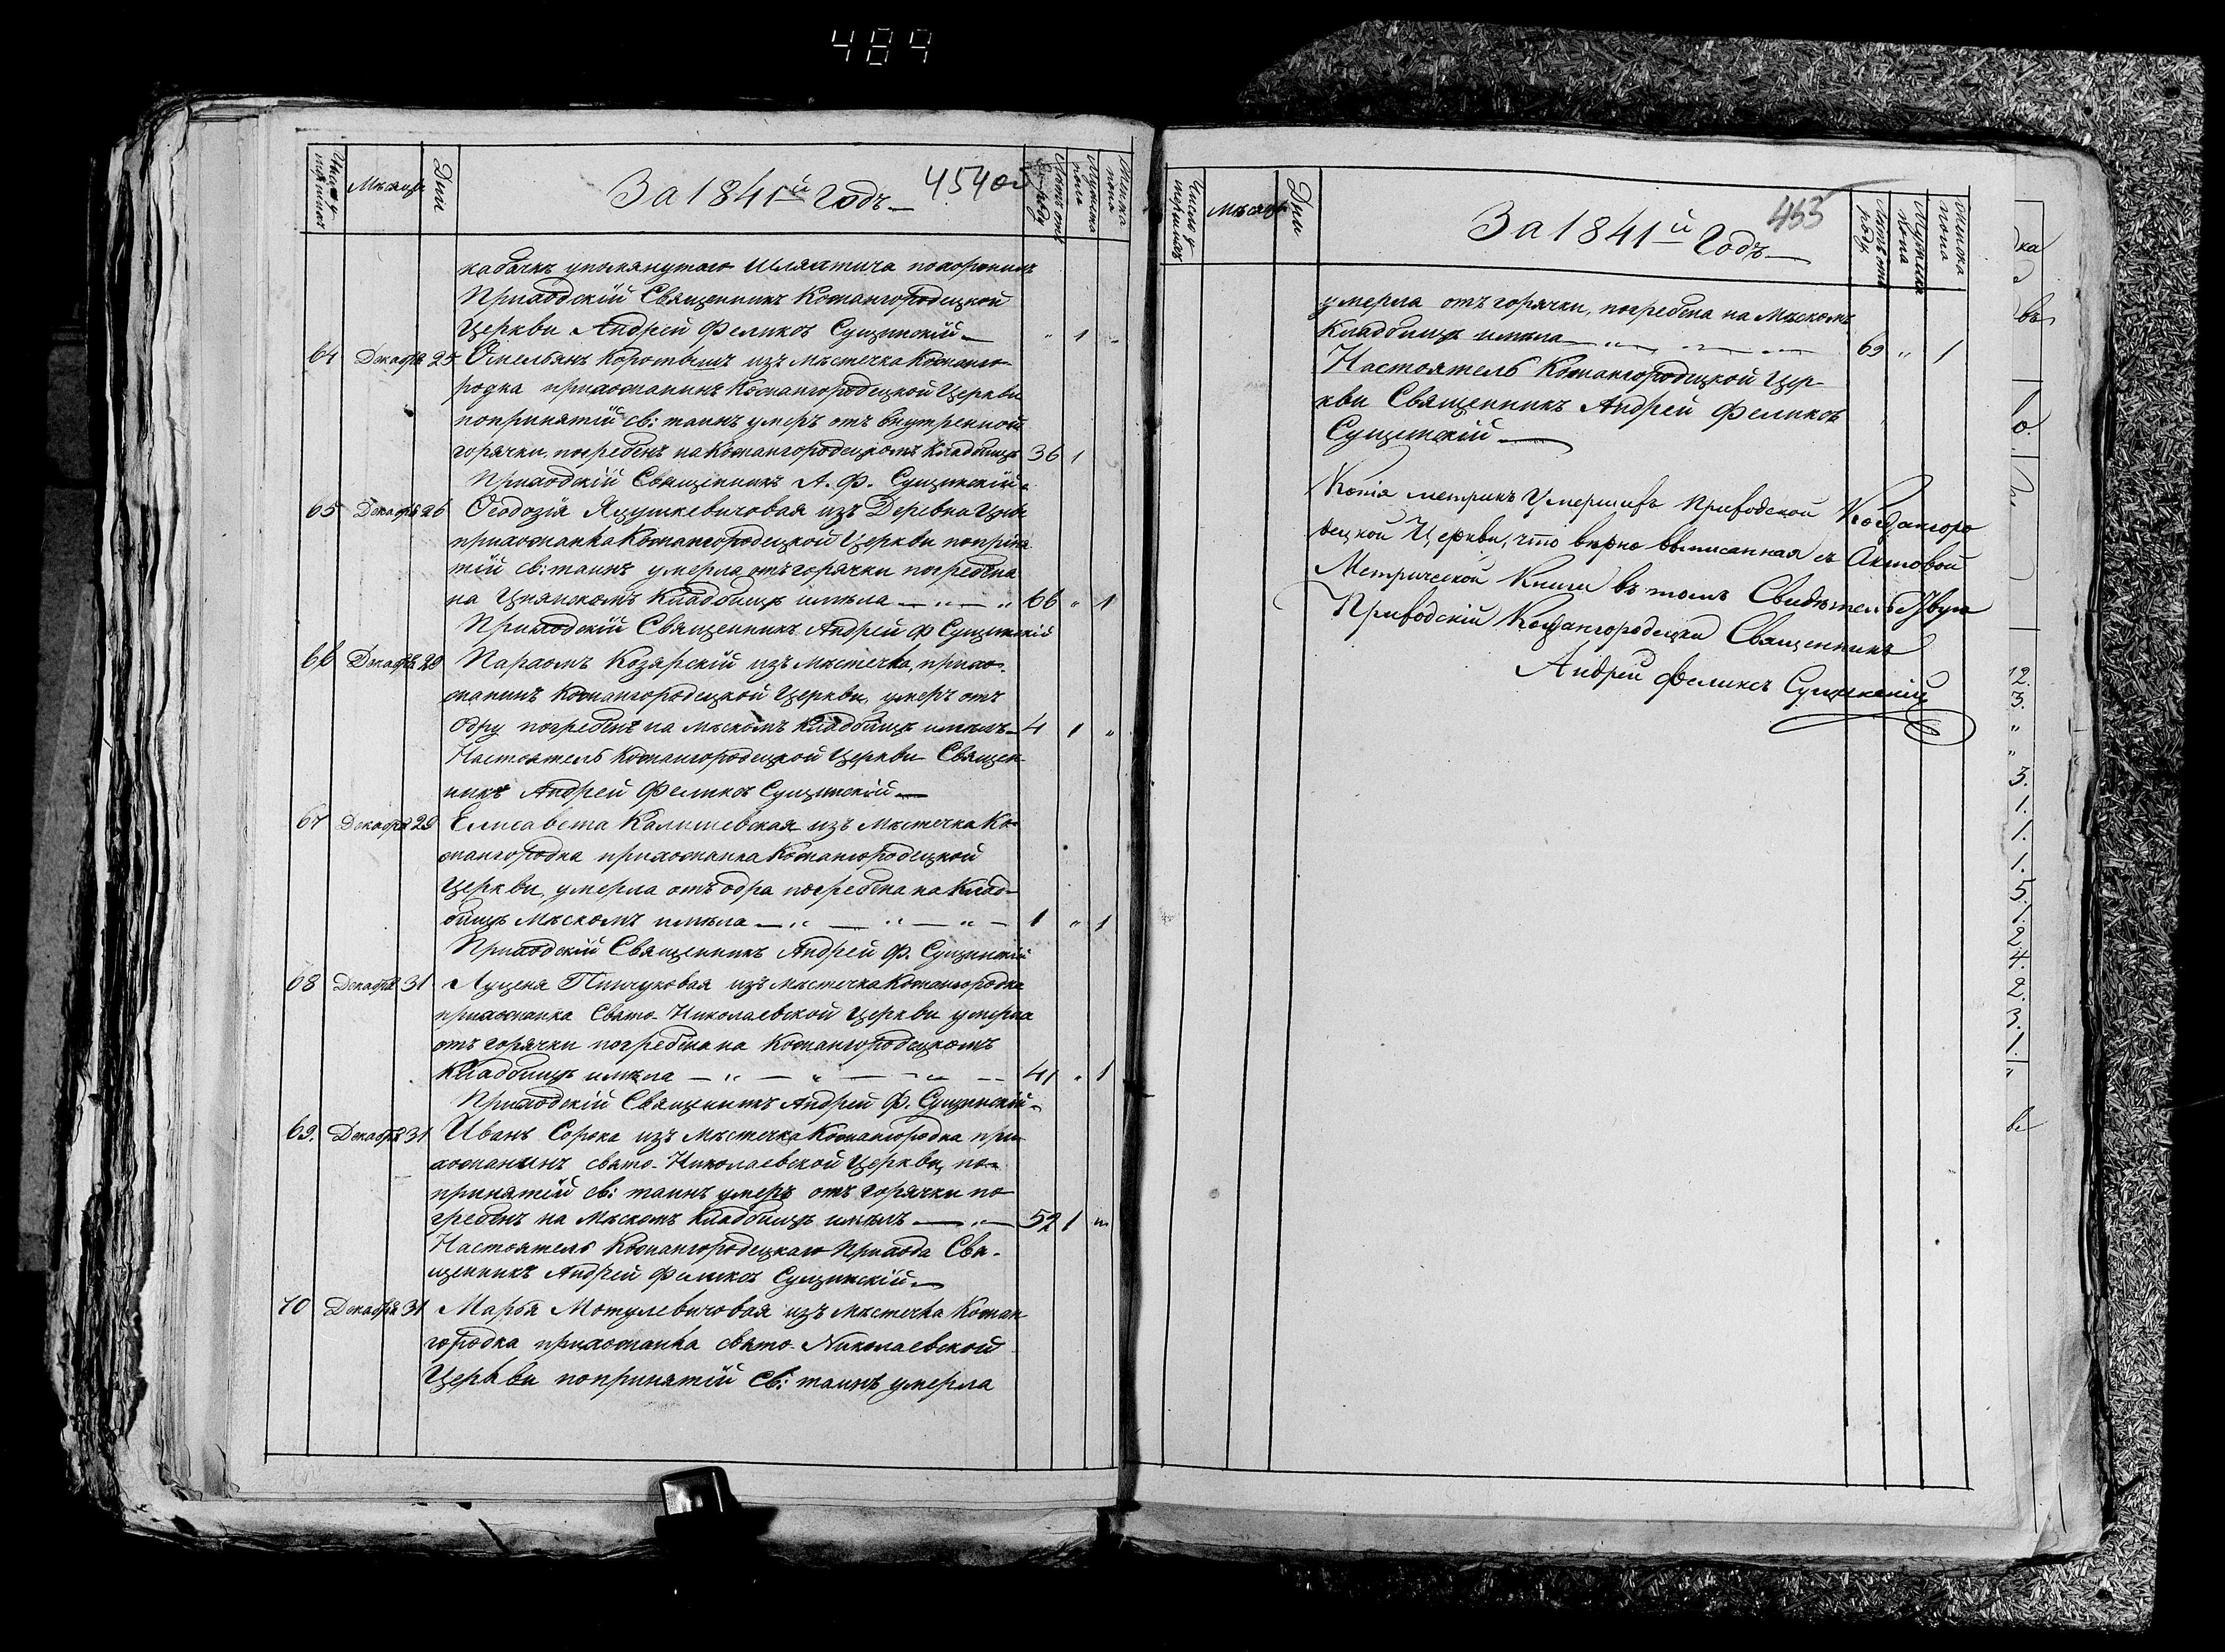 489
Число умершихъ
Мѣсяцъ
Дни
За 1841й Годъ
454об
Лѣтъ отъ роду
Мужеска пола
Женска пола
упомянутаго Шляхтича похоронилъ
Приходскій Священникъ Кожангородецкой
Церкви Андрей Феликсъ Сущинскій — „ 1 „
64 Декабря 25 Омельянъ Коротышъ изъ Мѣстечка Кожанго-
родка прихожанинъ Кожангородецкой Церкви
попринятіи св: таинъ умеръ отъ внутренной
горячки, погребенъ на Кожангородецкомъ Кладбищѣ 36 1
Приходскій Священникъ А. Ф. Сущинскій.
65 Декабря 26 Ѳеодозія Яцушкевичовая изъ Деревни
прихожанка Кожангородецкой Церкви поприня-
тіи св: таинъ умерла отъ горячки погребена
на Цнянскомъ Кладбищѣ имѣла — „ — „ 66 „ 1
Приходскій Священникъ Андрей Ф Сущинскій
66 Декабря 29 Пархомъ Козярскій изъ Мѣстечка, прихо-
жанинъ Кожангородецкой Церкви, умеръ отъ
Одру погребенъ на Мѣскомъ Кладбищѣ имѣлъ — 4 1 „
Настоятель Кожангородецкой Церкви Священ-
никъ Андрей Феликсъ Сущинскій —
67 Декабря 29 Елисавета Калишевская изъ Мѣстечка Ко-
жангородка прихожанка Кожангородецкой
Церкви, умерла отъ одра погребена на Клад-
бищѣ Мѣскомъ имѣла — „ — „ — „ — 1 „ 1
Приходскій Священникъ Андрей Ф. Сущинскій
68 Декабря 31 Луцея Пинчуковая изъ Мѣстечка Кожангородка
прихожанка Свято-Николаевской Церкви умерла
отъ горячки погребена на Кожангородецкомъ
Кладбищѣ имѣла — „ — „ — „ — 41 „ 1
Приходскій Священникъ Андрей Ф. Сущинскій —
69. Декабря 31 Иванъ Сорока изъ Мѣстечка Кожангородка при-
хожанинъ свято-Николаевской Церкви, по-
принятіи св: таинъ умеръ отъ горячки по-
гребенъ на Мѣскомъ Кладбищѣ имѣлъ — „ — 52 1 „
Настоятель Кожангородецкаго Прихода Свя-
щенникъ Андрей Феликсъ Сущинскій —
70 Декабря 31 Марья Мотулевичовая изъ Мѣстечка Кожан-
городка прихожанка свято-Николаевской
Церкви попринятіи Св: таинъ умерла
Число умершихъ
Мѣсяцъ
Дни
За 1841й Годъ
453
Лѣтъ отъ роду
Мужеска пола
Женска пола
умерла отъ горячки, погребена на Мѣскомъ
Кладбищѣ имѣла — „ — „ — „ 69 „ 1
Настоятель Кожангородецкой Цер-
кви Священникъ Андрей Феликсъ
Сущинскій —
Копія метрикъ Умершихъ Приходской Кожангоро
децкой Церкви, что вѣрно выписанная съ Актовой
Метрической Книги въ томъ Свидѣтельствую
Приходскій Кожангородецкій Священникъ
Андрей Феликсъ Сущинскій
ка
въ
о.
12.
3.
„
„
3.
1.
1.
1.
5.
1.
2.
4.
2.
3.
1.